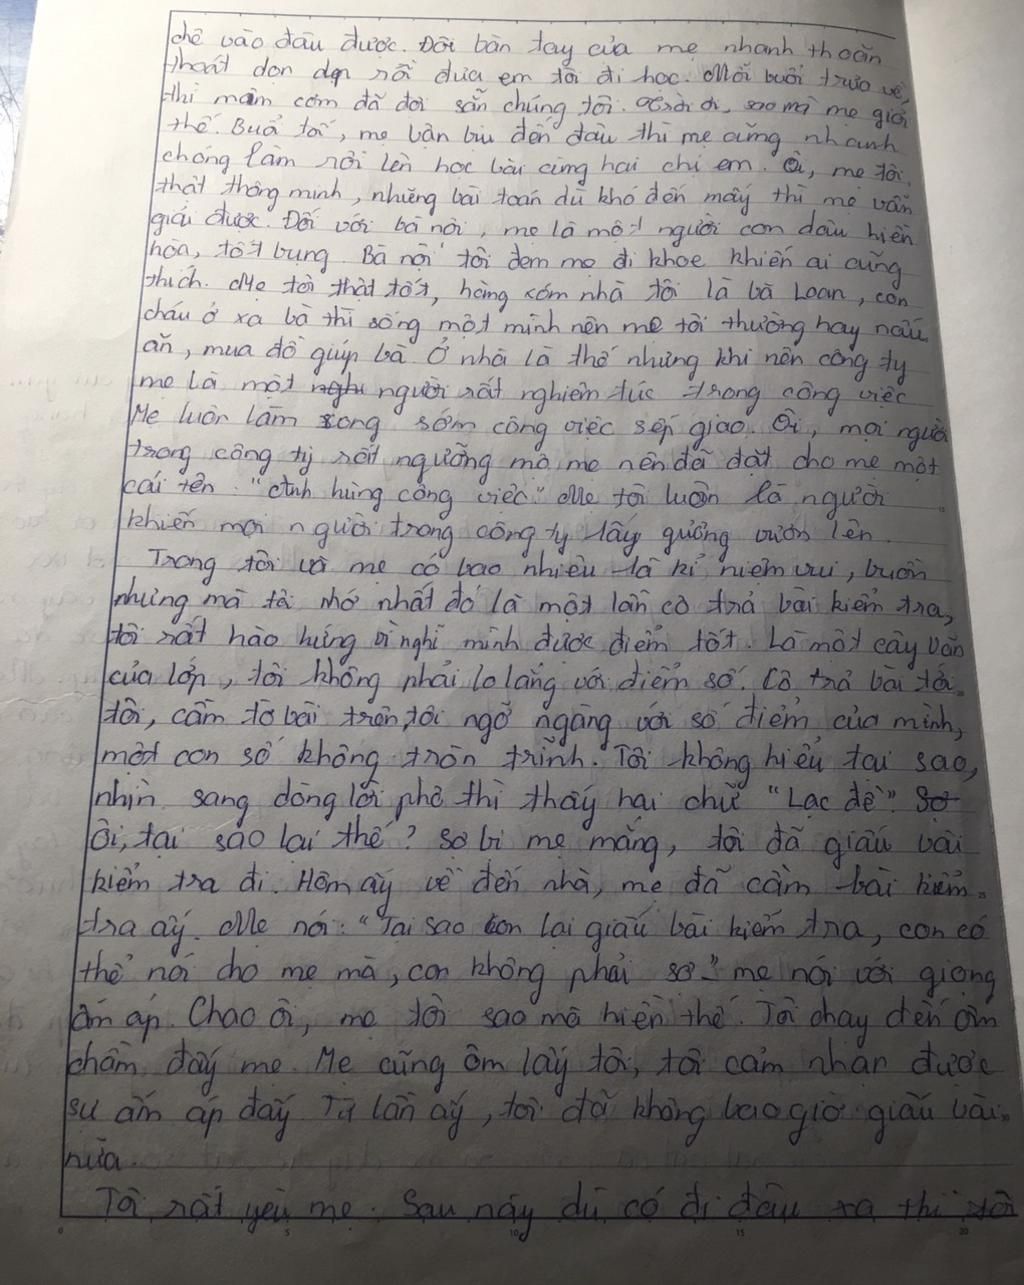 chê vào đâu được. Đôi bàn tay của mẹ nhanh thoăn
thoắt dọn dẹp rồi đưa em tôi đi học. Mỗi buổi trưa về,
thì mâm cơm đã đợi sẵn chúng tôi. Ôi trời ơi, sao mà mẹ giỏi
thế. Buổi tối, mẹ bận bịu đến đâu thì mẹ cũng nhanh
chóng làm rồi lên học bài cùng hai chị em. Ôi, mẹ tôi
thật thông minh, những bài toán dù khó đến mấy thì mẹ vẫn
giải được. Đối với bà nội, mẹ là một người con dâu hiền
hòa, tốt bụng. Bà nội tôi đem mẹ đi khoe khiến ai cũng
thích. Mẹ tôi thật tốt, hàng xóm nhà tôi là bà Loan, con
cháu ở xa bà thì sống một mình nên mẹ tôi thường hay nấu
ăn, mua đồ giúp bà. Ở nhà là thế nhưng khi nên công ty
mẹ là một người rất nghiêm túc trong công việc
Mẹ luôn làm song sớm công việc sếp giao. Ôi, mọi người
trong công ty rất ngưỡng mộ mẹ nên đã đặt cho mẹ một
cái tên "Anh hùng công việc" Mẹ tôi luôn là người
khiến mọi người trong công ty lấy gưởng vươn lên.
Trong tôi và mẹ có bao nhiêu là kỉ niệm vui, buồn
nhưng mà tôi nhớ nhất đó là một lần cô trả bài kiểm tra,
tôi rất hào hứng vì nghĩ mình được điểm tốt. Là một cây văn
của lớp, tôi không phải lo lắng với điểm số. Cô trả bài tới
tôi, cầm tờ bài trên, tôi ngỡ ngàng với số điểm của mình,
một con số không tròn trĩnh. Tôi không hiểu tại sao,
nhìn sang dòng lời phê thì thấy hai chữ "Lạc đề" Sợ
Ôi, tại sao lại thế? sợ bị mẹ mắng, tôi đã giấu bài
kiểm tra đi. Hôm ấy về đến nhà, mẹ đã cầm bài kiểm
tra ấy. Mẹ nói: "Tại sao con lại giấu bài kiểm tra, con có
thể nói cho mẹ mà, con không phải sợ." mẹ nói với giọng
ấm áp. Chao ôi, mẹ tôi sao mà hiền thế. Tôi chạy đến ôm
chầm đấy mẹ. Mẹ cũng ôm lấy tôi, tôi cảm nhận được
sự ấm áp đấy Từ lần ấy, tôi đã không bao giờ giấu bài
nữa.
Tôi rất yêu mẹ. Sau này dù có đi đâu xa thì tôi